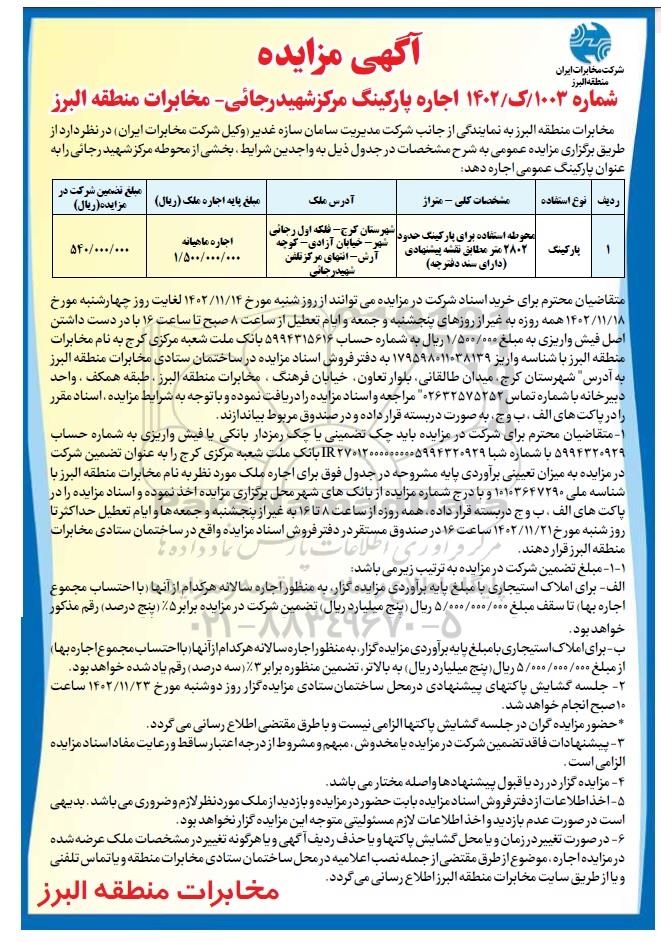 آگهی مزایده
شرکت مخابرات ایران
منطقه البرز
شماره ۱۰۰۳/ک/۱۴۰۲ اجاره پارکینگ مرکزشهیدرجائی- مخابرات منطقه البرز
مخابرات منطقه البرز به نمایندگی از جانب شرکت مدیریت سامان سازه غدیر(وکیل شرکت مخابرات ایران) در نظر دارد از
طریق برگزاری مزایده عمومی به شرح مشخصات در جدول ذیل به واجدین شرایط ، بخشی از محوطه مرکز شهید رجائی را به
عنوان پارکینگ عمومی اجاره دهد:
ردیف نوع استفاده مشخصات کلی – متراژ آدرس ملک مبلغ پایه اجاره ملک (ریال) مبلغ تضمین شرکت در مزایده(ریال)
۱ پارکینگ محوطه استفاده برای پارکینگ حدود ۲۸۰۲ متر مطابق نقشه پیشنهادی (دارای سند دفترچه) شهرستان کرج– فلکه اول رجائی شهر– خیابان آزادی– کوچه آرش– انتهای مرکز تلفن شهیدرجائی اجاره ماهیانه ۱/۵۰۰/۰۰۰/۰۰۰ ۵۴۰/۰۰۰/۰۰۰
متقاضیان محترم برای خرید اسناد شرکت در مزایده می توانند از روز شنبه مورخ ۱۴۰۲/۱۱/۱۴ لغایت روز چهارشنبه مورخ
۱۴۰۲/۱۱/۱۸ همه روزه به غیر از روزهای پنجشنبه و جمعه و ایام تعطیل از ساعت ۸ صبح تا ساعت ۱۶ با در دست داشتن
اصل فیش واریزی به مبلغ ۱/۵۰۰/۰۰۰ ریال به شماره حساب ۵۹۹۴۳۱۵۶۱۶ بانک ملت شعبه مرکزی کرج به نام مخابرات
منطقه البرز با شناسه واریز ۱۷۹۵۹۸۰۱۱۰۳۸۱۳۹ به دفتر فروش اسناد مزایده در ساختمان ستادی مخابرات منطقه البرز
به آدرس" شهرستان کرج ، میدان طالقانی، بلوار تعاون ، خیابان فرهنگ ، مخابرات منطقه البرز ، طبقه همکف ، واحد
دبیرخانه با شماره تماس ۰۲۶۳۲۵۷۵۲۵۲" مراجعه و اسناد مزایده را دریافت نموده و با توجه به شرایط مزایده ، اسناد مقرر
را در پاکت های الف ، ب و ج، به صورت دربسته قرار داده و در صندوق مربوط بیاندازند.
۱– متقاضیان محترم برای شرکت در مزایده باید چک تضمینی یا چک رمزدار بانکی یا فیش واریزی به شماره حساب
۵۹۹۴۳۲۰۹۲۹ با شماره شبا IR۲۷۰۱۲۰۰۰۰۰۰۰۰۰۵۹۹۴۳۲۰۹۲۹ بانک ملت شعبه مرکزی کرج را به عنوان تضمین شرکت
در مزایده به میزان تعیینی برآوردی پایه مشروحه در جدول فوق برای اجاره ملک مورد نظر به نام مخابرات منطقه البرز با
شناسه ملی ۱۰۱۰۳۶۴۷۲۹۰ و با درج شماره مزایده از بانک های شهر محل برگزاری مزایده اخذ نموده و اسناد مزایده را در
پاکت های الف ، ب و ج دربسته قرار داده ، همه روزه از ساعت ۸ تا ۱۶ به غیر از پنجشنبه و جمعه ها و ایام تعطیل حداکثر تا
روز شنبه مورخ ۱۴۰۲/۱۱/۲۱ ساعت ۱۶ در صندوق مستقر در دفتر فروش اسناد مزایده واقع در ساختمان ستادی مخابرات
منطقه البرز قرار دهند.
۱–۱– مبلغ تضمین شرکت در مزایده به ترتیب زیر می باشد:
الف- برای املاک استیجاری با مبلغ پایه برآوردی مزایده گزار، به منظور اجاره سالانه هر کدام از آنها (با احتساب مجموع
اجاره بها) تا سقف مبلغ ۵/۰۰۰/۰۰۰/۰۰۰ ریال (پنج میلیارد ریال) تضمین شرکت در مزایده برابر ۵٪ (پنج درصد) رقم مذکور
خواهد بود.
ب-برای املاک استیجاری با مبلغ پایه برآوردی مزایده گزار، به منظور اجاره سالانه هر کدام از آنها(با احتساب مجموع اجاره بها)
از مبلغ ۵/۰۰۰/۰۰۰/۰۰۰ ریال (پنج میلیارد ریال) به بالاتر، تضمین منظوره برابر ۳٪ (سه درصد) رقم یاد شده خواهد بود.
۲– جلسه گشایش پاکتهای پیشنهادی در محل ساختمان ستادی مزایده گزار روز دوشنبه مورخ ۱۴۰۲/۱۱/۲۳ ساعت
۱۰صبح انجام خواهد شد.
*حضور مزایده گران در جلسه گشایش پاکتها الزامی نیست و با طرق مقتضی اطلاع رسانی می گردد.
۳– پیشنهادات فاقد تضمین شرکت در مزایده یا مخدوش ، مبهم و مشروط از درجه اعتبار ساقط و رعایت مفاد اسناد مزایده
الزامی است .
۴– مزایده گزار در رد یا قبول پیشنهادها و اصله مختار می باشد.
۵–اخذ اطلاعات از دفتر فروش اسناد مزایده بابت حضور در مزایده و بازدید از ملک مورد نظر لازم و ضروری می باشد . بدیهی
است در صورت عدم بازدید و اخذ اطلاعات لازم مسئولیتی متوجه این مزایده گزار نخواهد بود.
۶– در صورت تغییر در زمان و یا محل گشایش پاکتها و یا حذف ردیف آگهی و یا هرگونه تغییر در مشخصات ملک عرضه شده
در مزایده اجاره ، موضوع از طرق مقتضی از جمله نصب اعلامیه در محل ساختمان ستادی مخابرات منطقه و یا تماس تلفنی
و یا از طریق سایت مخابرات منطقه البرز اطلاع رسانی می گردد.
مخابرات منطقه البرز
۰۲۱-۸۸۳۴۹۶۷۰-۵